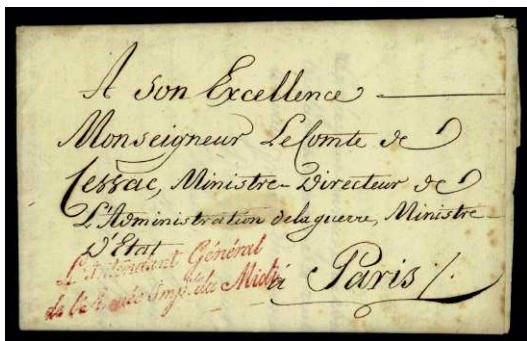 A Son Excellence
Monseigneur Le Comte de
Cessac, Ministre-Directeur de
L'Administration de la guerre, Ministre
D'Etat
L'Intendant Général
de l'Armée Imp.le du Midi
à Paris /.